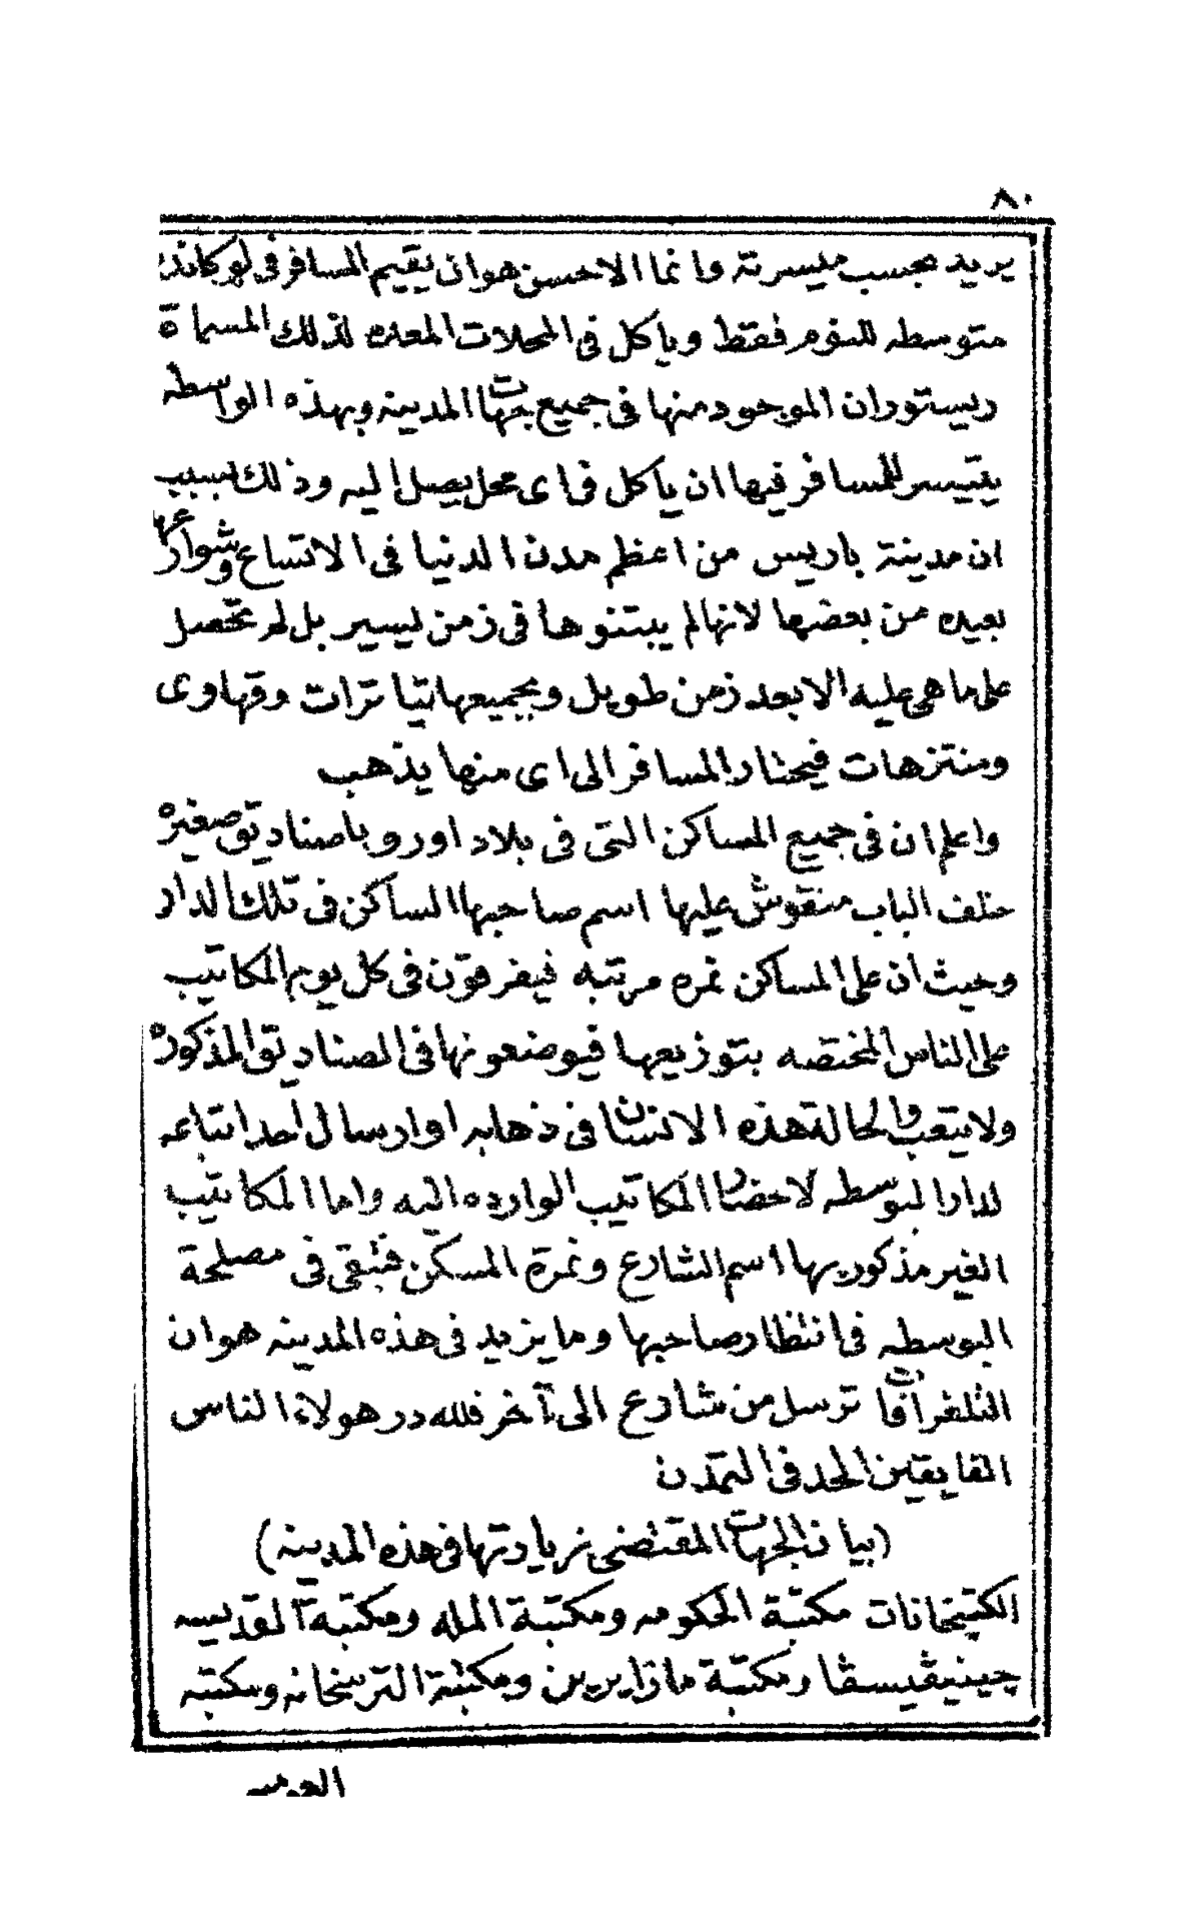 ٨٠
يريد بحسب ميسرته وانما الاحسن هو ان يقيم المسافر فى لوكانده
متوسطه للنوم فقط وياكل فى المحلات المعده لذلك المسماة
ريستوران الموجود منها فى جميع جهات المدينه وبهذه الواسطه
يتيسر للمسافر فيها ان ياكل فى اى محل يصل اليه وذلك بسبب
ان مدينة باريس من اعظم مدن الدنيا فى الاتساع وشوارعها
بعيده عن بعضها لانها لم يبتنوها فى زمن يسير بل لم تحصل
على ما هى عليه الا بعد زمن طويل وبجميعها تياترات وقهاوى
ومنتزهات فيختار المسافر الى اى منها يذهب
واعلم ان فى جميع المساكن التى فى بلاد اوروبا صناديق صغيره
خلف الباب منقوش عليها اسم صاحبها الساكن فى تلك الدار
وحيث ان على المساكن نمره مرتبه فيفرقون فى كل يوم المكاتيب
على الناس المختصه بتوزيعها فيوضعونها فى الصناديق المذكوره
ولا يتعب والحالة هذه الانسان فى ذهابه او ارسال احد اتباعه
لدار البوسطه لاحضار المكاتيب الوارده اليه واما المكاتيب
الغير مذكور بها اسم الشارع ونمرة المسكن فتبقى فى مصلحة
البوسطه فى انتظار صاحبها وما يزيد فى هذه المدينه هو ان
التلغرافات ترسل من شارع الى آخر فلله در هولاء الناس
الفايقين الحد فى التمدن
(بيان الجهات المقتضى زيارتها فى هذه المدينه)
الكتبخانات مكتبة الحكومه ومكتبة المله ومكتبة القديسه
چينيڤيسڤا ومكتبة مازارين ومكتبة الترسخانه ومكتبه